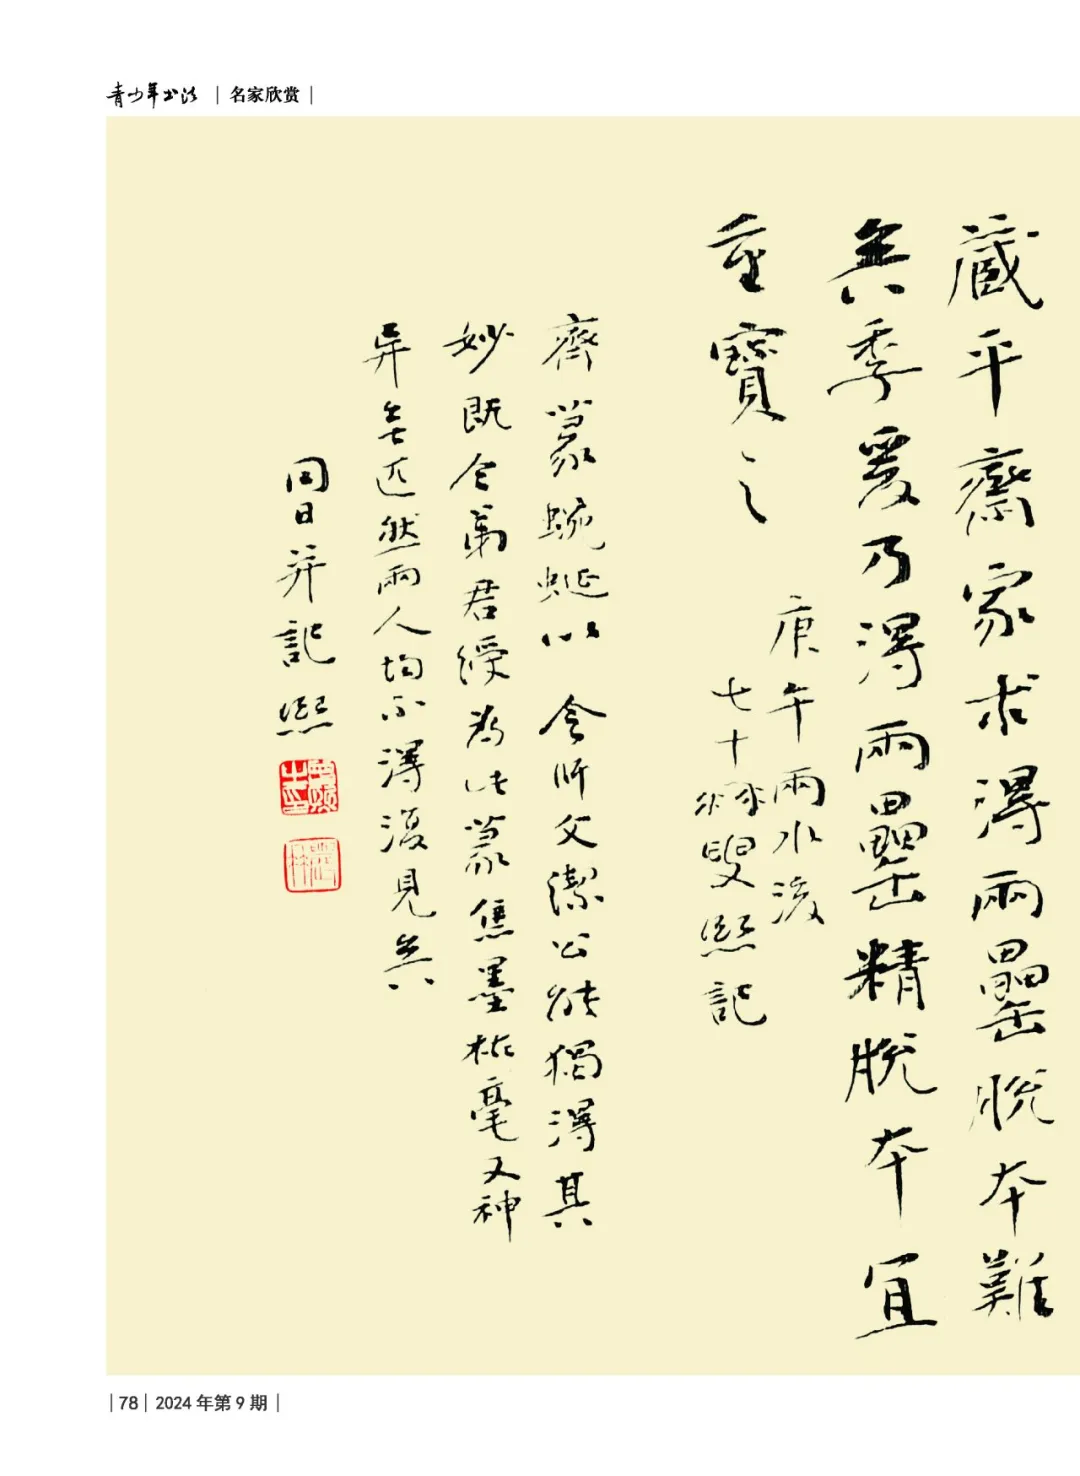 青少年书法 | 名家欣赏 |
藏平齋家求得兩罍脫本難
矣季爰乃得兩罍精脫本宜
重寶之
庚午雨水後
七十叟熙記
齊篆蜿蜒以令昕父潔公能獨得其
妙既令弟君綬為此篆焦墨枯毫又神
异無匹然兩人均不得復見矣
同日并記熙
| 78 | 2024 年第 9 期 |